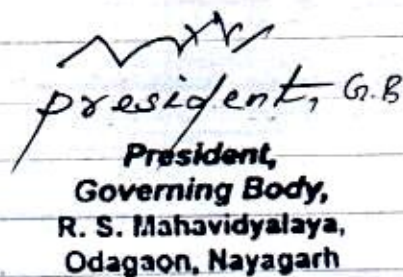 president, G.B
President,
Governing Body,
R. S. Mahavidyalaya,
Odagaon, Nayagarh